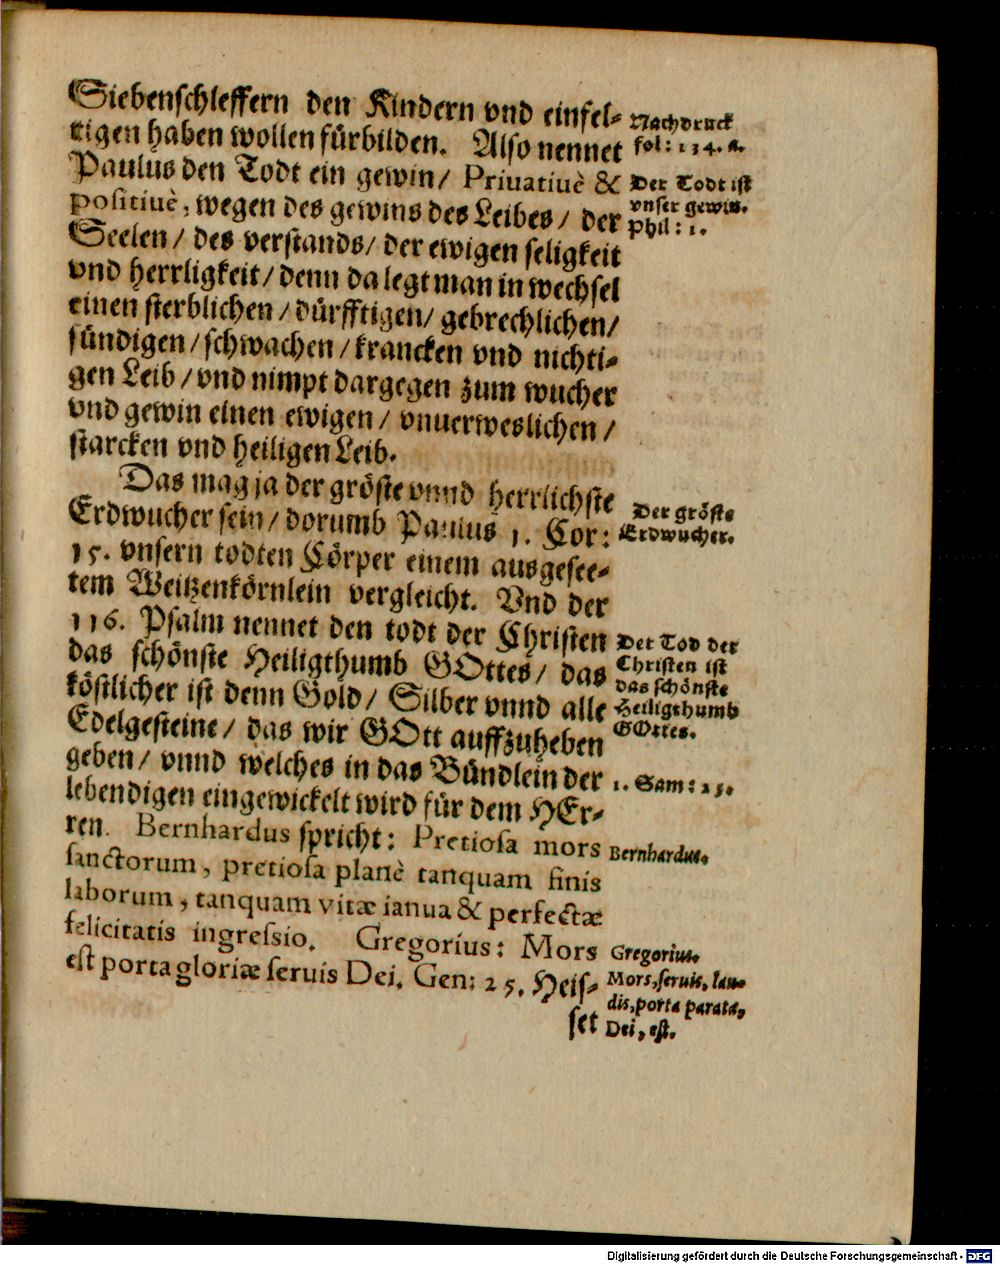 Siebenschleffern den Kindern vnd einfel-
tigen haben wollen fürbilden. Also nennet
Paulus den Todt ein gewin/ Priuatiuè &
positiuè, wegen des gewins des Leibes/ der
Seelen/ des verstands/ der ewigen seligkeit
vnd herrligkeit/ denn da legt man in wechsel
einen sterblichen/ dürfftigen/ gebrechlichen/
sündigen/ schwachen/ krancken vnd nichti-
gen Leib/ vnd nimpt dargegen zum wucher
vnd gewin einen ewigen/ vnuerweslichen/
starcken vnd heiligen Leib.
Das mag ja der gröste vnnd herrlichste
Erdwucher sein/ dorumb Paulus 1. Cor:
15. vnsern todten Cörper einem ausgesee-
tem Weitzenkörnlein vergleicht. Vnd der
116. Psalm nennet den todt der Christen
das schönste Heiligthumb GOttes/ das
köstlicher ist denn Gold/ Silber vnnd alle
Edelgesteine/ das wir GOtt auffzuheben
geben/ vnnd welches in das Bündlein der
lebendigen eingewickelt wird für dem HEr-
ren. Bernhardus spricht: Pretiosa mors
sanctorum, pretiosa planè tanquam finis
laborum, tanquam vitæ ianua & perfectæ
felicitatis ingressio. Gregorius: Mors
est porta gloriæ seruis Dei. Gen: 25. Heis-
set
Nachdruck
fol: 134. a.
Der Todt ist
vnser gewin.
Phil: 1.
Der gröste
Erdwucher.
Der Tod der
Christen ist
das schönste
Heiligthumb
GOttes.
1. Sam: 25.
Bernhardus.
Gregorius.
Mors, seruis, lau-
dis, porta parata,
Dei, est.
Digitalisierung gefördert durch die Deutsche Forschungsgemeinschaft - DFG